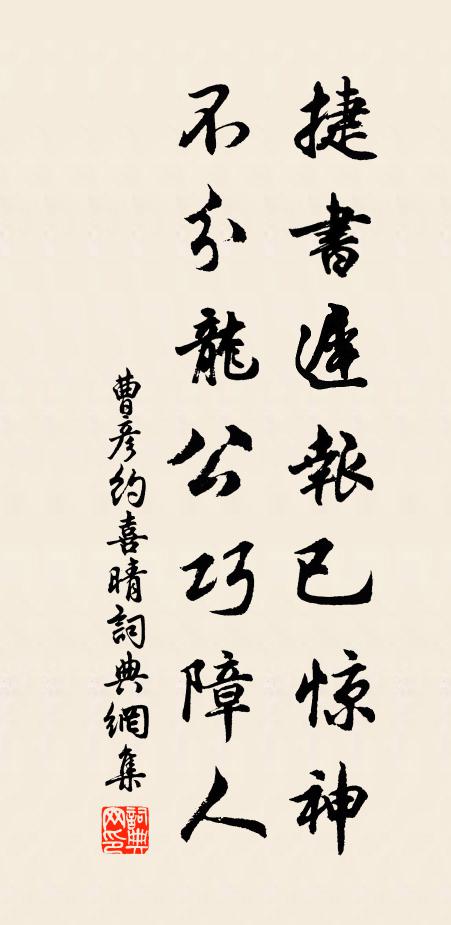 捷書遲報已惊神
不分龍公巧障人
曹彦约喜晴詞典網集
詞典網印